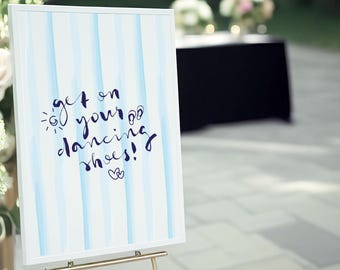 get on
your
dancing
shoes!